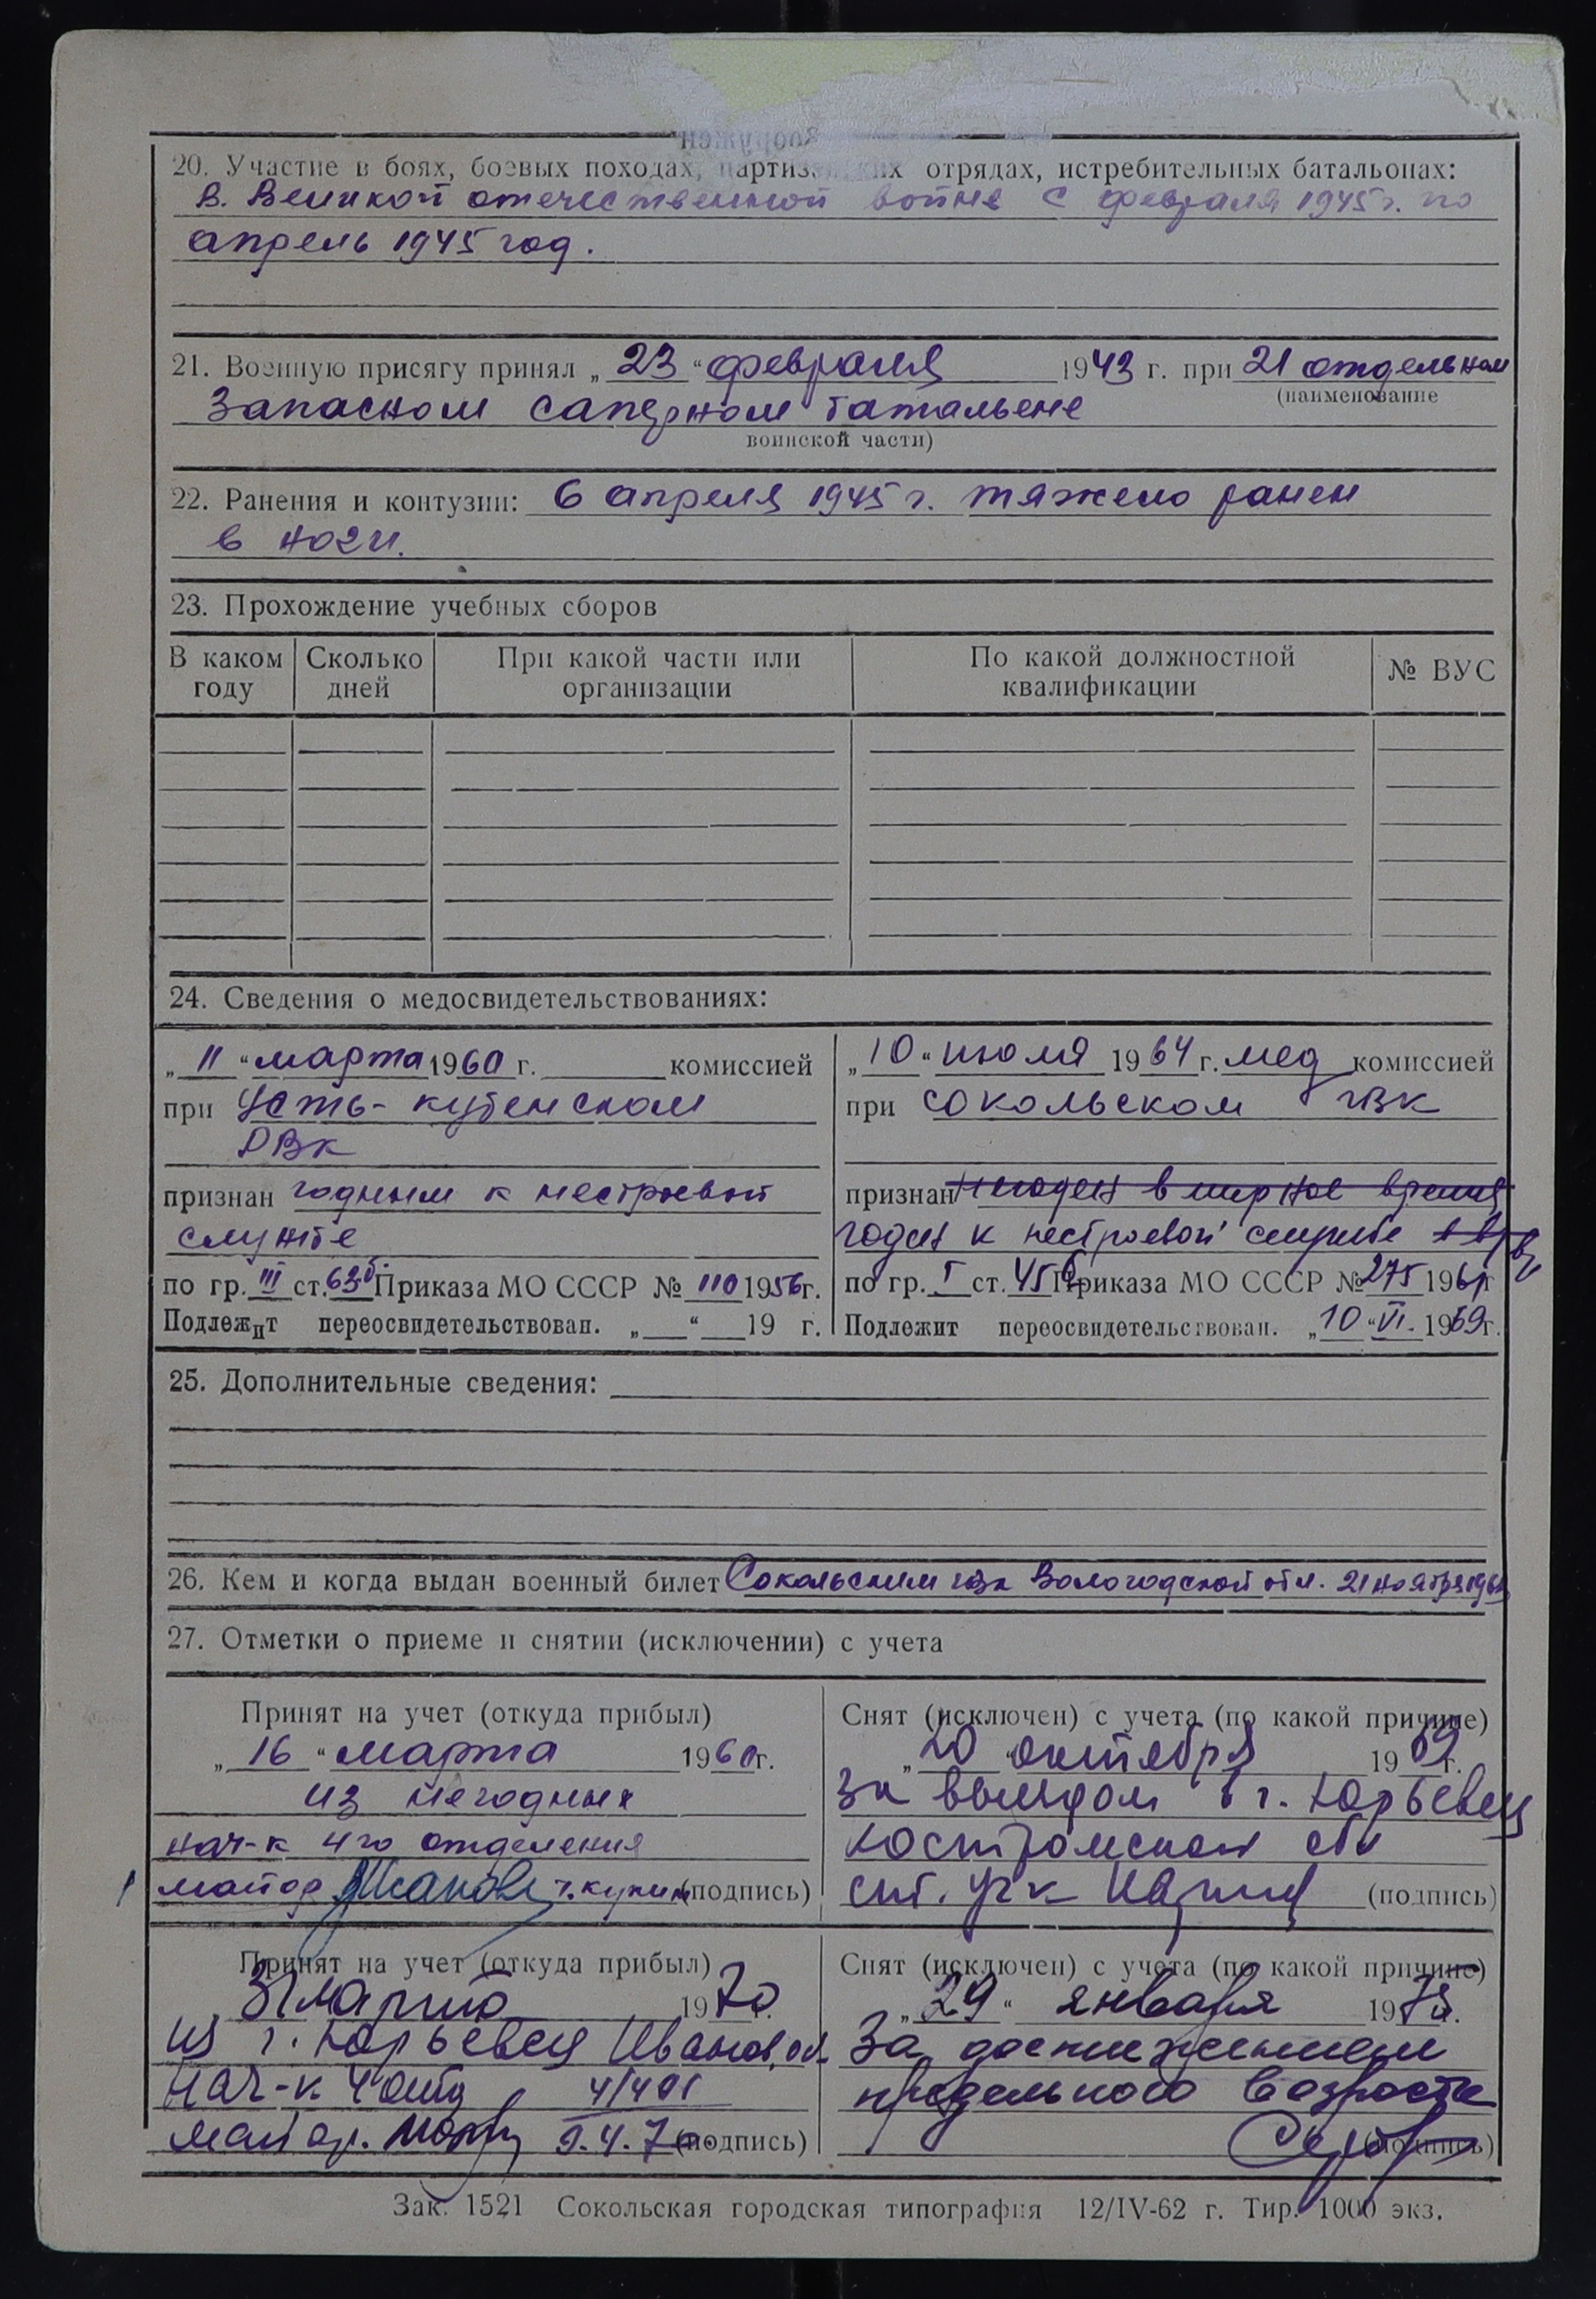 20. Участие в боях, боевых походах, партиз. ких отрядах, истребительных батальонах:
В. Великой отечественной войне с февраля 1945 г. по
апрель 1945 год.
21. Военную присягу принял „ 23 “ февраля 1943 г. при 21 отдельном
(наименование
Запасном саперном батальене
воинской части)
22. Ранения и контузии: 6 апреля 1945 г. тяжело ранен
в ноги.
23. Прохождение учебных сборов
В каком году | Сколько дней | При какой части или организации | По какой должностной квалификации | № ВУС
24. Сведения о медосвидетельствованиях:
„ 11 “ марта 1960 г. комиссией
при Усть-кубенском
РВк
признан годным к нестроевой
службе
по гр. III ст. 63б. Приказа МО СССР № 110 1956 г.
Подлежит переосвидетельствован. „ “ 19 г.
„ 10 “ июля 1964 г. мед комиссией
при сокольском гвк
признан негоден в мирное время
годен к нестроевой службе
по гр. I ст. 45б Приказа МО СССР № 275 196 г
Подлежит переосвидетельствован. „ 10 “ VI. 1969 г.
25. Дополнительные сведения:
26. Кем и когда выдан военный билет Сокольским гвк Вологодской обл. 21 ноября 196
27. Отметки о приеме и снятии (исключении) с учета
Принят на учет (откуда прибыл)
„ 16 “ марта 1960 г.
из негодных
нач-к 4го отделения
майор (подпись)
Снят (исключен) с учета (по какой причине)
„ 20 “ октября 1969 г.
за выездом в г. Юрьевец
костромской обл
(подпись)
Принят на учет (откуда прибыл)
31 марта 1970 г.
из г. Юрьевец Иванов. обл.
Нач-к 4 отд 4/401
майор. 9.4.70. (подпись)
Снят (исключен) с учета (по какой причине)
„ 29 “ января 197 г.
За достижением
предельного возраста
(подпись)
Зак. 1521 Сокольская городская типография 12/IV-62 г. Тир. 1000 экз.